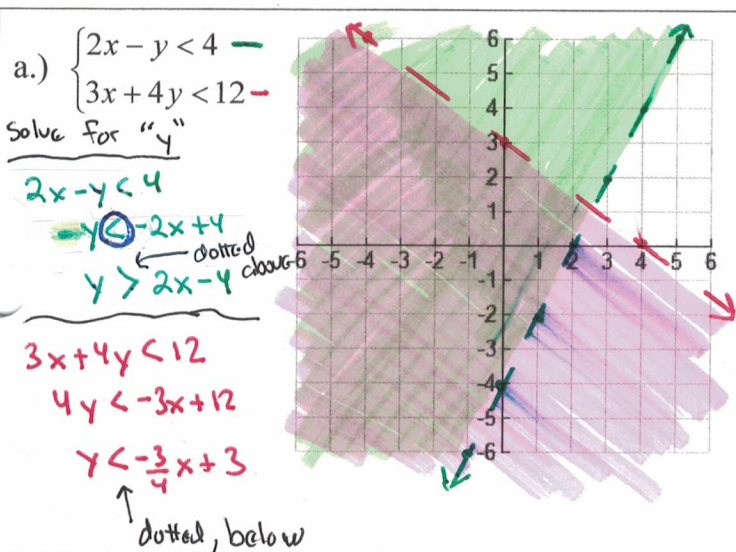 a.) { 2x − y < 4
3x + 4y < 12
Solve for "y"
2x-y<4
-y<-2x+4
dotted
above
y > 2x-4
3x+4y<12
4y<-3x+12
y<-3/4x+3
dotted, below
6
5
4
3
2
1
-6 -5 -4 -3 -2 -1 1 2 3 4 5 6
-1
-2
-3
-4
-5
-6